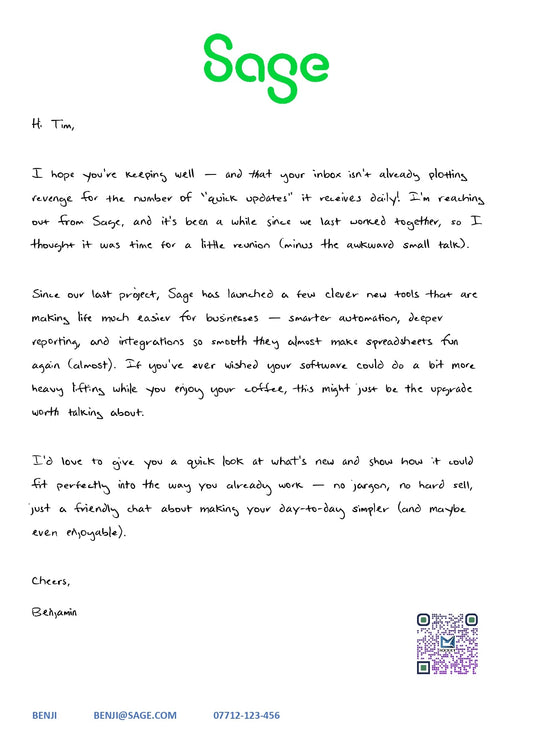 Sage
Hi Tim,
I hope you've keeping well — and that your inbox isn't already plotting
revenge for the number of "quick updates" it receives daily! I'm reaching
out from Sage, and it's been a while since we last worked together, so I
thought it was time for a little reunion (minus the awkward small talk).
Since our last project, Sage has launched a few clever new tools that are
making life much easier for businesses — smarter automation, deeper
reporting, and integrations so smooth they almost make spreadsheets fun
again (almost). If you've ever wished your software could do a bit more
heavy lifting while you enjoy your coffee, this might just be the upgrade
worth talking about.
I'd love to give you a quick look at what's new and show how it could
fit perfectly into the way you already work — no jargon, no hard sell,
just a friendly chat about making your day-to-day simpler (and maybe
even enjoyable).
Cheers,
Benjamin
BENJI BENJI@SAGE.COM 07712-123-456